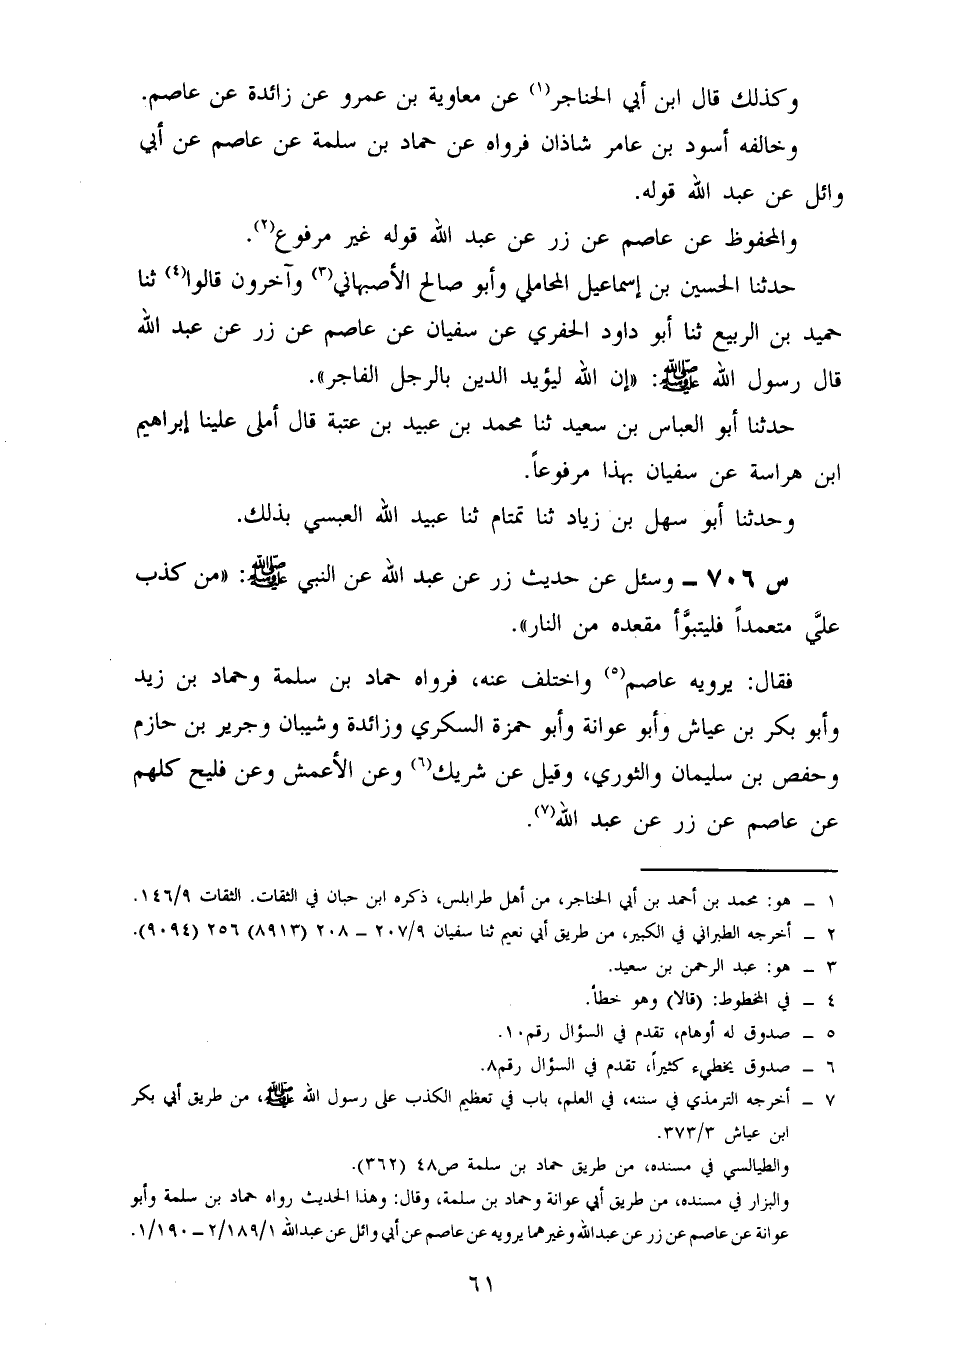 وكذلك قال ابن أبي الحناجر(١) عن معاوية بن عمرو عن زائدة عن عاصم.
وخالفه أسود بن عامر شاذان فرواه عن حماد بن سلمة عن عاصم عن أبي
وائل عن عبد الله قوله.
والمحفوظ عن عاصم عن زر عن عبد الله قوله غير مرفوع(٢).
حدثنا الحسين بن إسماعيل المحاملي وأبو صالح الأصبهاني(٣) وآخرون قالوا(٤) ثنا
حميد بن الربيع ثنا أبو داود الحفري عن سفيان عن عاصم عن زر عن عبد الله
قال رسول الله ﷺ: «إن الله ليؤيد الدين بالرجل الفاجر».
حدثنا أبو العباس بن سعيد ثنا محمد بن عبيد بن عتبة قال أملى علينا إبراهيم
ابن هراسة عن سفيان بهذا مرفوعاً.
وحدثنا أبو سهل بن زياد ثنا تمتام ثنا عبيد الله العبسي بذلك.
س ٧٠٦ – وسئل عن حديث زر عن عبد الله عن النبي ﷺ: «من كذب
عليَّ متعمداً فليتبوَّأ مقعده من النار».
فقال: يرويه عاصم(٥) واختلف عنه، فرواه حماد بن سلمة وحماد بن زيد
وأبو بكر بن عياش وأبو عوانة وأبو حمزة السكري وزائدة وشيبان وجرير بن حازم
وحفص بن سليمان والثوري، وقيل عن شريك(٦) وعن الأعمش وعن فليح كلهم
عن عاصم عن زر عن عبد الله(٧).
١ – هو: محمد بن أحمد بن أبي الحناجر، من أهل طرابلس، ذكره ابن حبان في الثقات. الثقات ١٤٦/٩.
٢ – أخرجه الطبراني في الكبير، من طريق أبي نعيم ثنا سفيان ٢٠٧/٩ – ٢٠٨ (٨٩١٣) ٢٥٦ (٩٠٩٤).
٣ – هو: عبد الرحمن بن سعيد.
٤ – في المخطوط: (قالا) وهو خطأ.
٥ – صدوق له أوهام، تقدم في السؤال رقم١٠.
٦ – صدوق يخطيء كثيراً، تقدم في السؤال رقم٨.
٧ – أخرجه الترمذي في سننه، في العلم، باب في تعظيم الكذب على رسول الله ﷺ، من طريق أبي بكر
ابن عياش ٣٧٣/٣.
والطيالسي في مسنده، من طريق حماد بن سلمة ص٤٨ (٣٦٢).
والبزار في مسنده، من طريق أبي عوانة وحماد بن سلمة، وقال: وهذا الحديث رواه حماد بن سلمة وأبو
عوانة عن عاصم عن زر عن عبدالله وغيرهما يرويه عن عاصم عن أبي وائل عن عبدالله ٢/١٨٩/١ – ١/١٩٠.
٦١